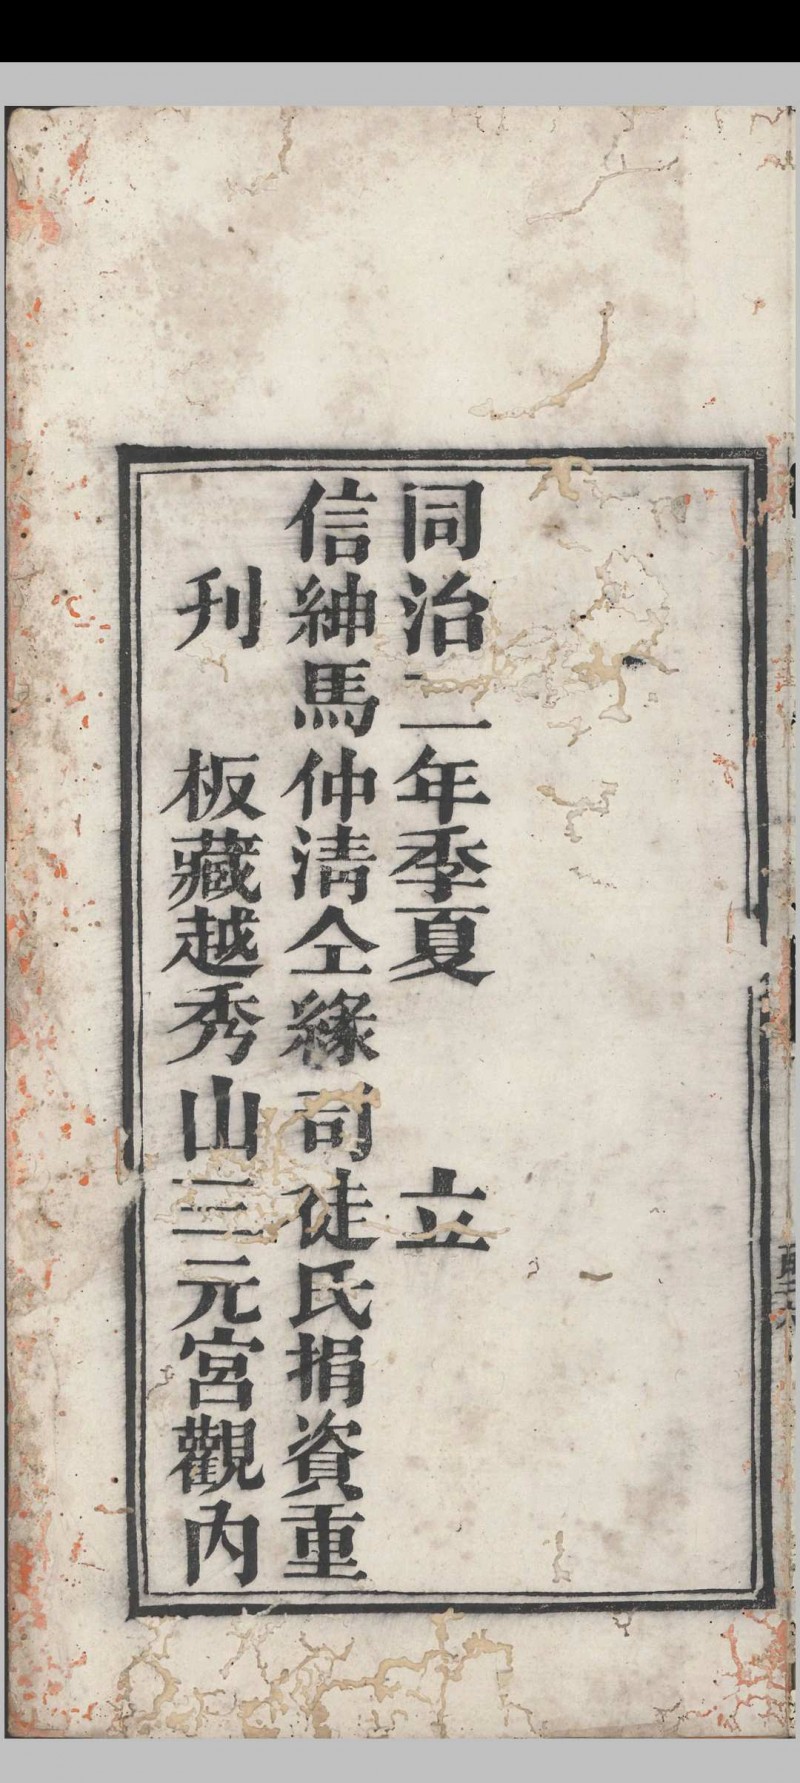 同治二年季夏　　立
信紳馬仲清仝緣司徒氏捐資重
刊　板藏越秀山三元宮觀內